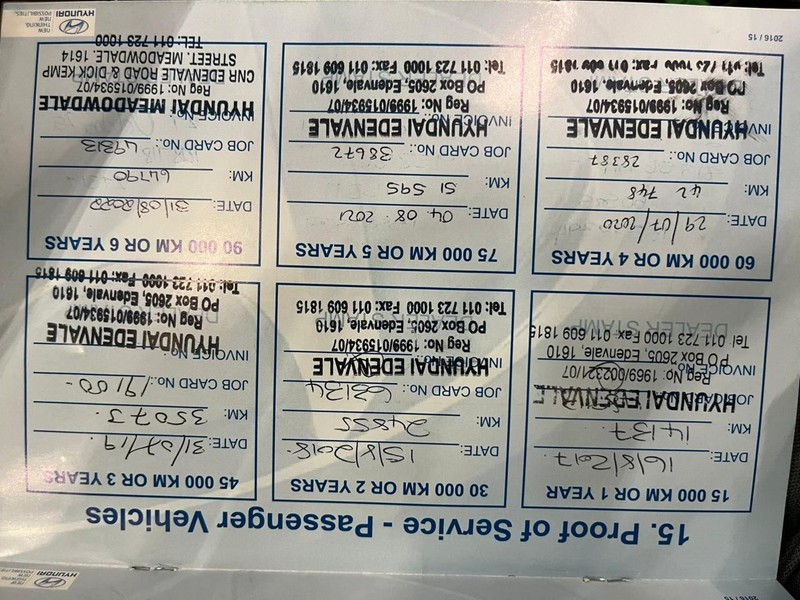 HYUNDAI
15. Proof of Service - Passenger Vehicles
15 000 KM OR 1 YEAR
DATE: 16/8/2017
KM: 14137
JOB CARD No.:
HYUNDAI EDENVALE
Reg No: 1969/002321/07
INVOICE No.:
PO Box 2605, Edenvale, 1610
Tel: 011 723 1000 Fax 011 609 1815
DEALER STAMP
30 000 KM OR 2 YEARS
DATE: 15/8/2018
KM: 24855
JOB CARD No.: 63134
INVOICE No.:
HYUNDAI EDENVALE
Reg No: 1999/015934/07
PO Box 2605, Edenvale, 1610
DEALER STAMP
Tel: 011 723 1000 Fax 011 609 1815
45 000 KM OR 3 YEARS
DATE: 31/07/19
KM: 35073
JOB CARD No.: 19100
INVOICE No.:
HYUNDAI EDENVALE
Reg No: 1999/015934/07
PO Box 2605, Edenvale, 1610
Tel: 011 723 1000 Fax: 011 609 1815
60 000 KM OR 4 YEARS
DATE: 29/07/2020
KM: 42 748
JOB CARD No.: 28387
INVOICE No.:
HYUNDAI EDENVALE
Reg No: 1999/015934/07
PO Box 2605, Edenvale, 1610
75 000 KM OR 5 YEARS
DATE: 04 08 2021
KM: 51 595
JOB CARD No.: 38672
INVOICE No.:
HYUNDAI EDENVALE
Reg No: 1999/015934/07
PO Box 2605, Edenvale, 1610
Tel: 011 723 1000 Fax: 011 609 1815
90 000 KM OR 6 YEARS
DATE: 31/08/2022
KM: 64790
JOB CARD No.: 49313
INVOICE No.:
HYUNDAI MEADOWDALE
Reg No: 1999/015934/07
CNR EDENVALE ROAD & DICK KEMP
STREET, MEADOWDALE, 1614
TEL: 011 723 1000
2016 / 15
HYUNDAI
NEW THINKING.
NEW POSSIBILITIES.